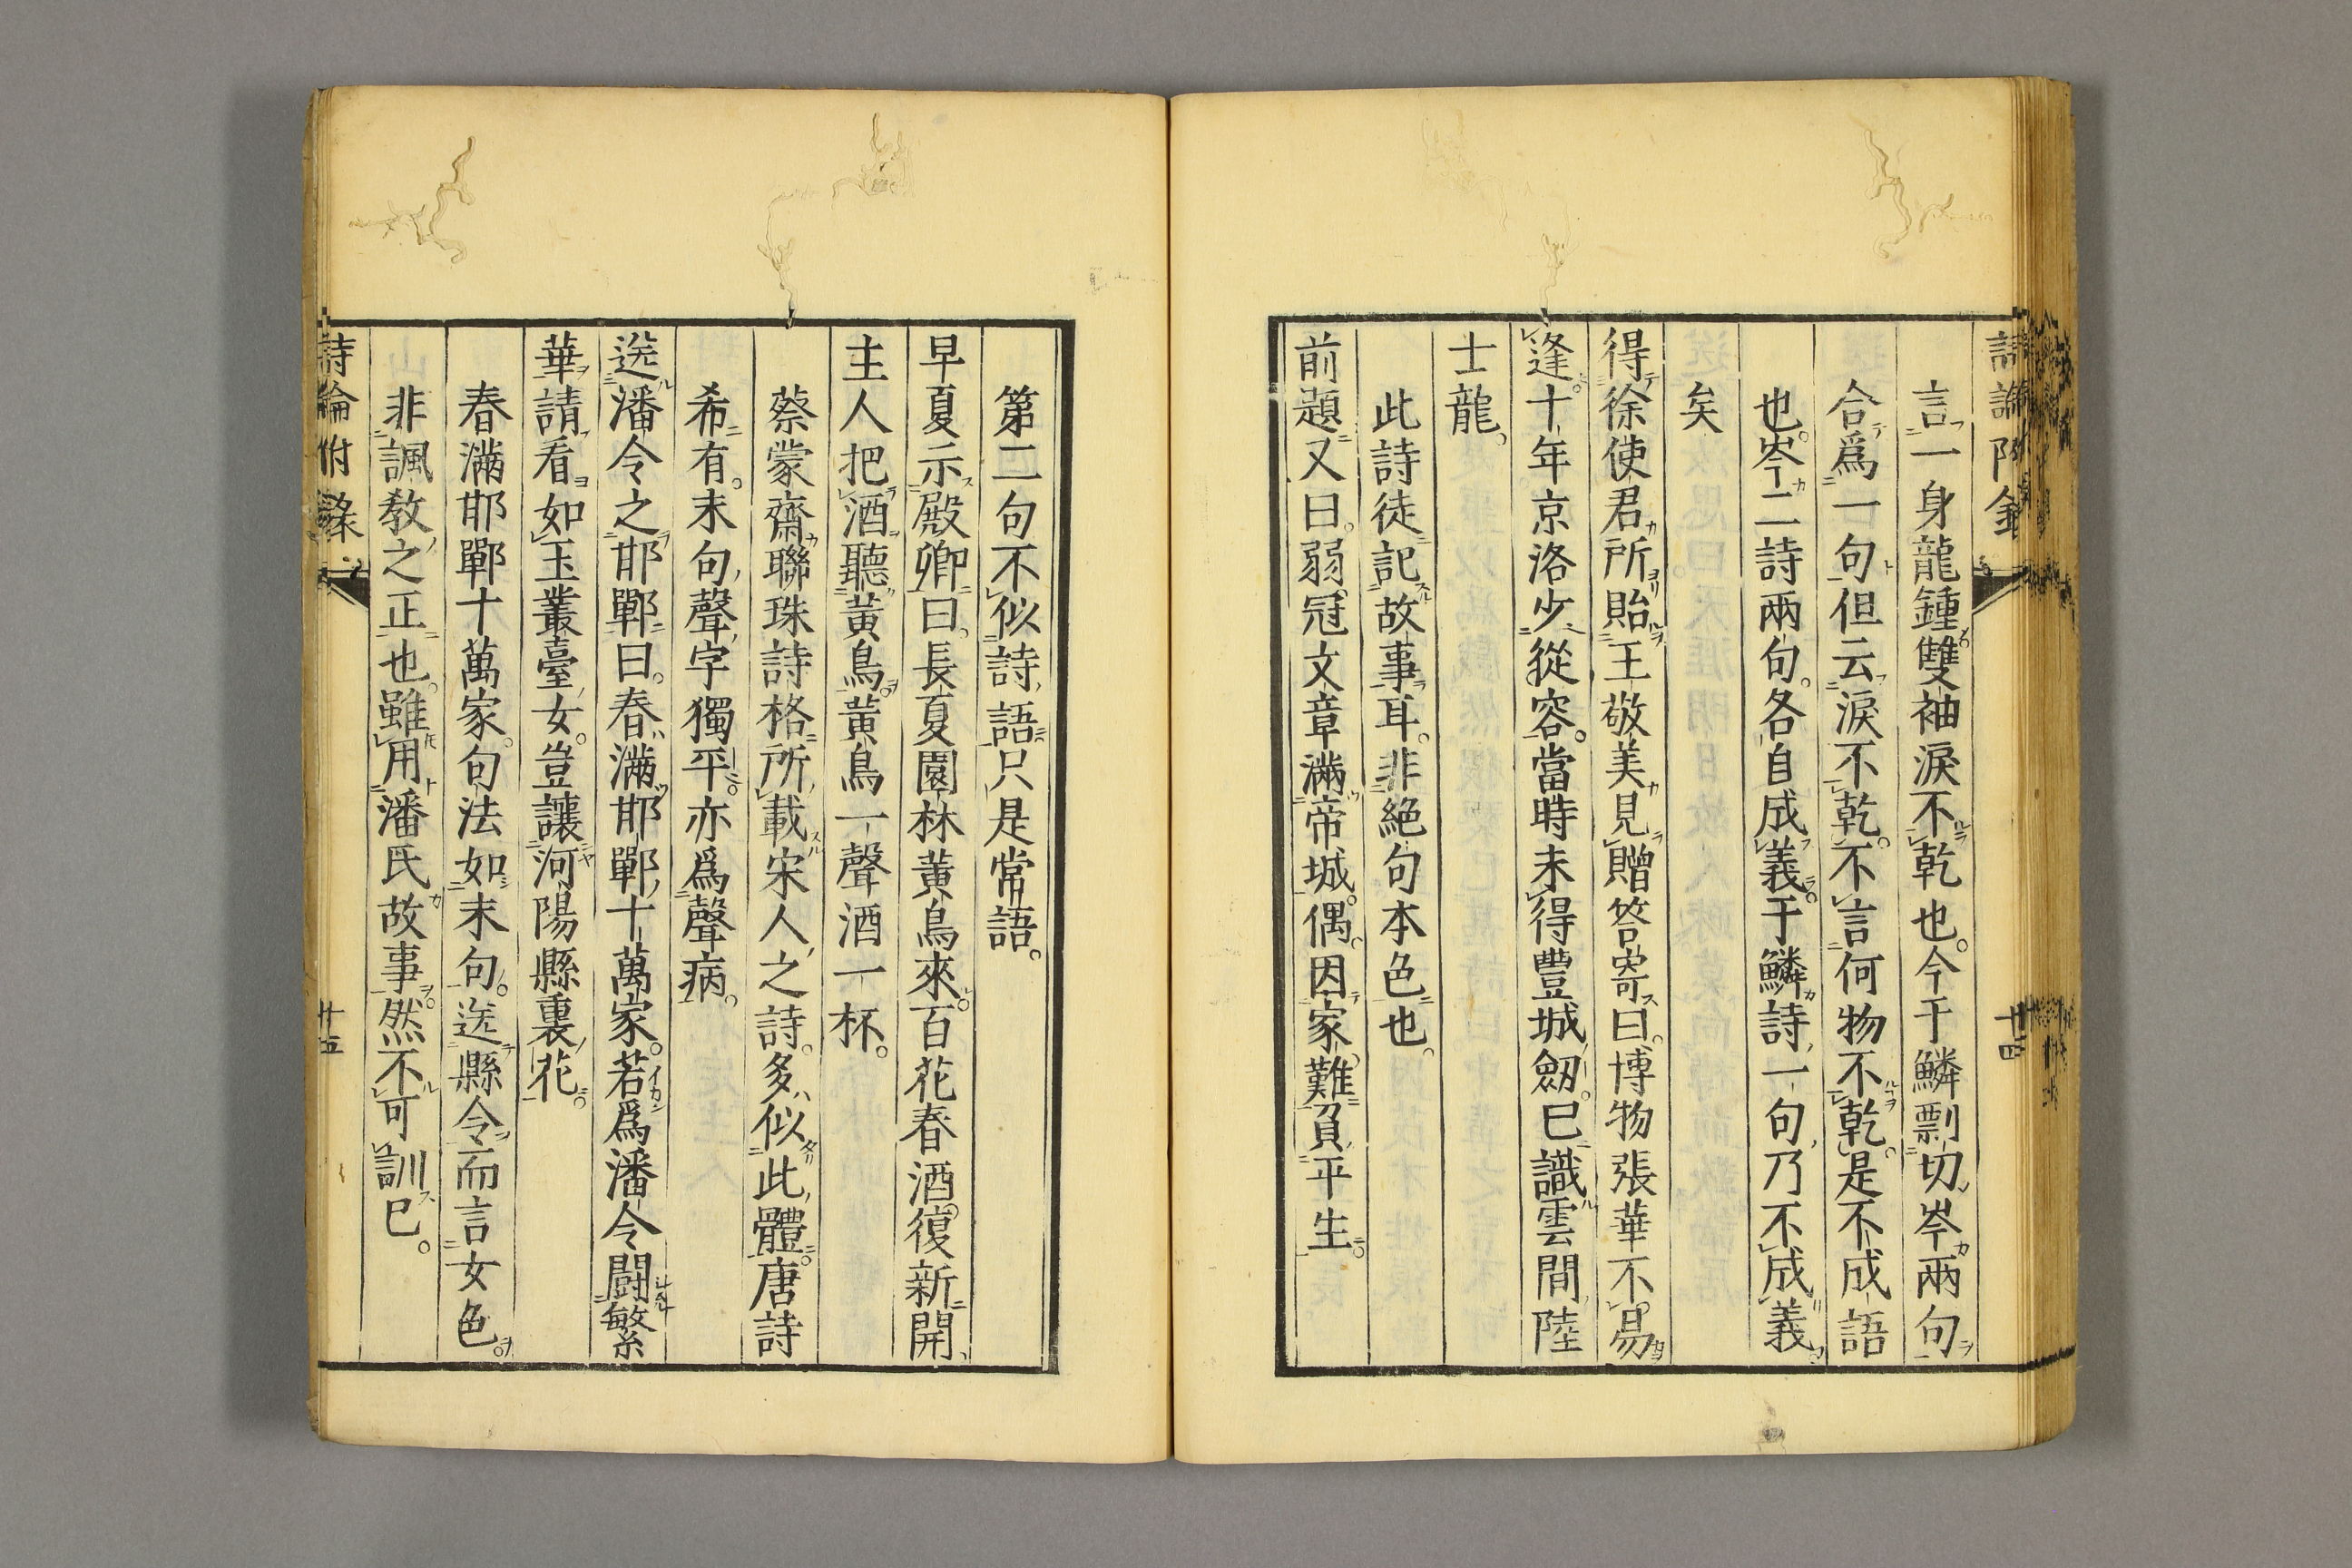 詩論附錄
言一身龍鍾雙袖淚不乾也。今于鱗剽切岑兩句
合爲一句但云淚不乾。不言何物不乾。是不成語
也。岑二詩兩句。各自成義。于鱗詩一句乃不成義
矣
得徐使君所貽王敬美見贈答寄曰。博物張華不易
逢。十年京洛少從容。當時未得豐城劒。已識雲間陸
士龍。
此詩徒記故事耳。非絕句本色也。
前題又曰。弱冠文章滿帝城。偶因家難負平生。
廿四
第二句不似詩語只是常語。
早夏示殿卿曰。長夏園林黃鳥來。百花春酒復新開、
主人把酒聽黃鳥。黃鳥一聲酒一杯。
蔡蒙齋聯珠詩格所載宋人之詩。多似此體。唐詩
希有。末句聲字獨平。亦爲聲病。
送潘令之邯鄲曰。春滿邯鄲十萬家。若爲潘令鬪繁
華請看如玉叢臺女。豈讓河陽縣裏花。
春滿邯鄲十萬家。句法如末句。送縣令而言女色。
非諷教之正也。雖用潘氏故事。然不可訓已。
詩論附錄
廿五